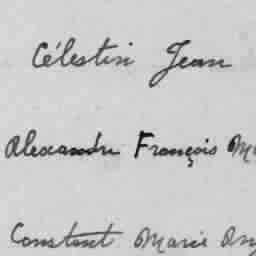 Célestin Jean
Alexandre François
Constant Marie